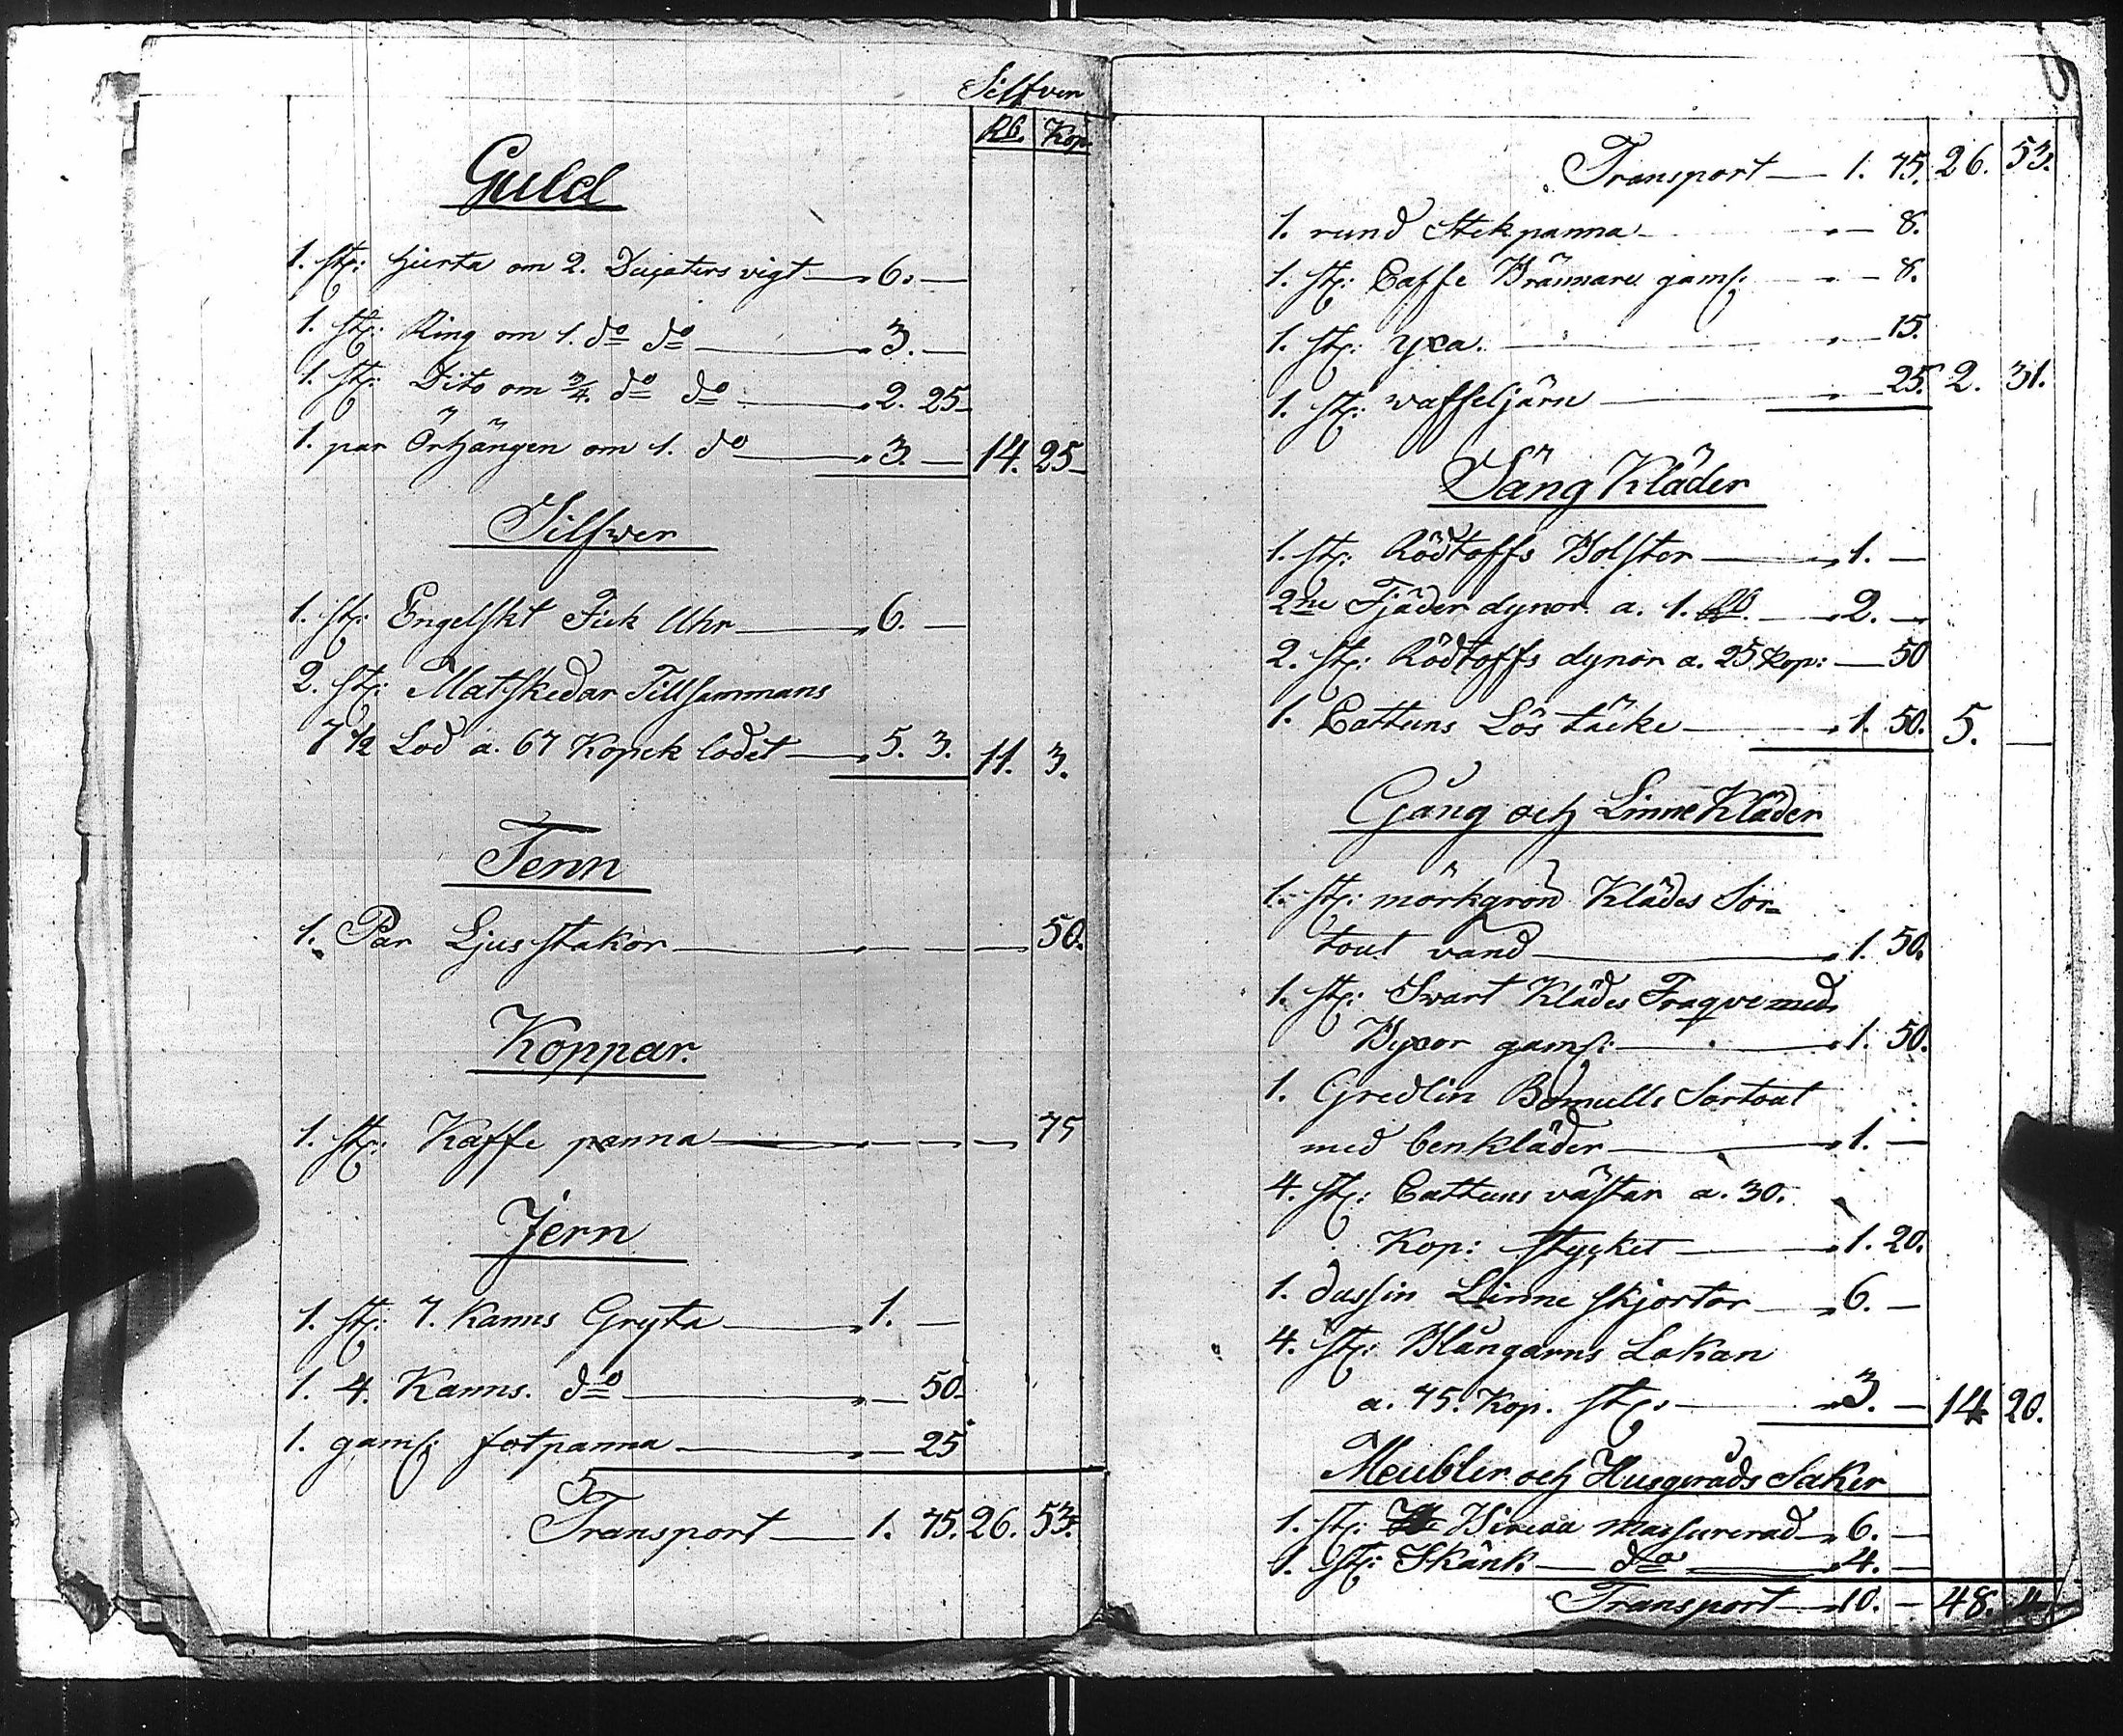 Silfver
Rb. Kop.
Guld
1. st: hjerta om 2. Dukaters vigt — 6. —
1. st: Ring om 1. do do — 3. —
1. st: Dito om 3/4. do do — 2. 25
1. par Örhängen om 1. do — 3. — 14. 25
Silfwer
1. st: Engelskt Fick Uhr — 6. —
2. st: Matskedar Tillsammans
7 1/2 Lod a. 67 Kopek lodet — 5. 3. 11. 3.
Tenn
1. Par Ljusstakor — 50.
Koppar.
1. st: Kaffe panna — 75
Jern
1. st: 7. Kanns Gryta — 1. —
1. 4. Kanns. do — 50.
1. gaml: fotpanna — 25
Transport — 1. 75. 26. 53.
Transport — 1. 75. 26. 53.
1. rund Stekpanna — 8.
1. st: Caffe Brännare gaml: — 8.
1. st: yxa. — 15.
1. st: waffeljärn — 25. 2. 31.
Säng Kläder
1. st: Rödtoffs Bolster — 1. —
2ne Fjäder dynor a. 1. Rb. — 2. —
2. st: Rödtoffs dynor a. 25 Kop: — 50
1. Cattuns Lös täcke — 1. 50. 5. —
Gång och Linne Kläder
1. st: mörkgrön Klädes Sor=
tout vänd — 1. 50.
1. st: Svart Klädes Fraque med
Byxor gaml: — 1. 50.
1. Gredlin Bomulls Sortout
med benkläder — 1. —
4. st: Cattuns västar a. 30.
Kop: stycket — 1. 20.
1. dussin Linne skjortor — 6. —
4. st: Blångarns Lakan
a. 75. Kop. st: — 3. — 14 20.
Meubler och Husgeråds Saker
1. st: masurerad — 6. —
1. st: Skänk — do — 4. —
Transport — 10. — 48.